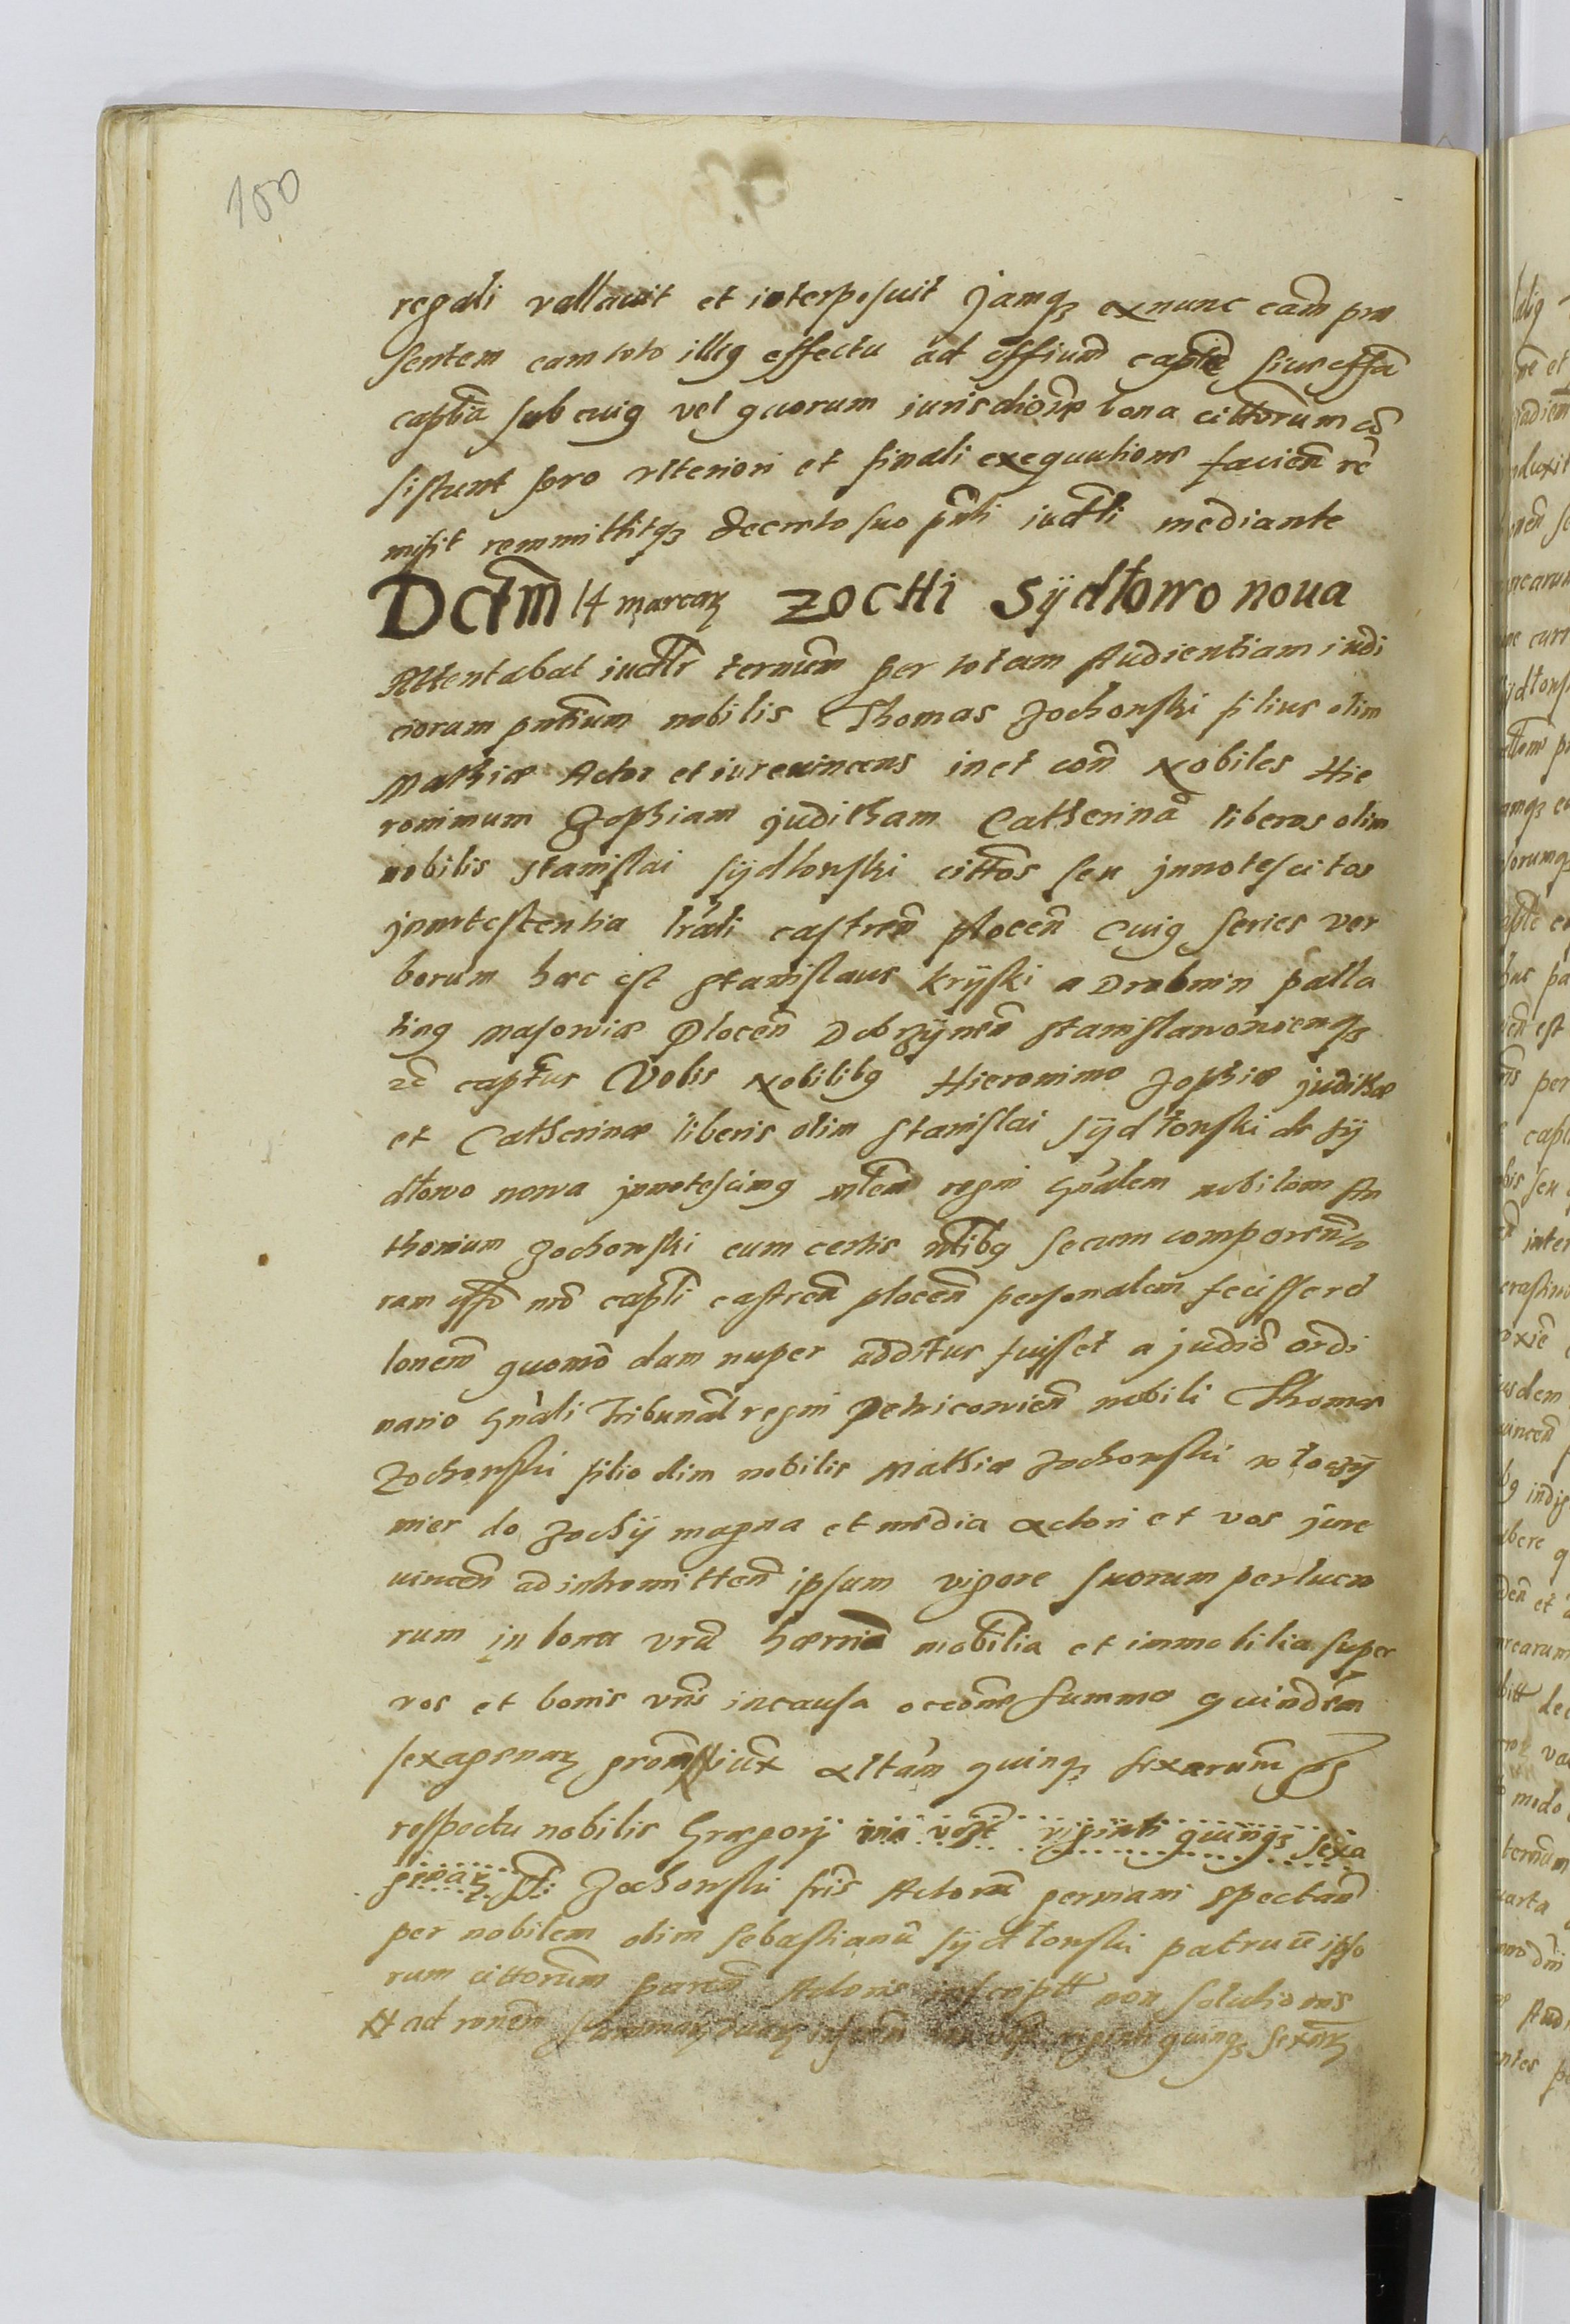 100
regali vallauit et interposuit jamqꝫ exnunc eam̃ præ
sentem cum toto illiꝯ effectu ad offium̃ captle siue offa
captlia sub cuiꝯ vel quorum iurisdicione bona cittorum cõ
sistunt pro vlteriori et finali exequutione facien̄ re
misit remmittitqꝫ decreto suo pn̄ti iudtli mediante
Dctm̃ 14 marcarꝫ ZOCHI Sÿdłowo noua
Attentabat iudtlr termĩm per totam Audientiam iudi
ciorum pn̄tium nobilis Thomas Zochowski filius olim
Mathiæ Actor et iureuincens in et con̄ Nobiles Hie
ronimum Zophiam juditham Catherinã liberos olim
nobilis Stanislai Sÿdlowski cittos seu jnnotescitos
jnnotestentia lrãli castren̄ plocen̄ Cuiꝯ series ver
borum hæc est Stanislaus krÿski a Drobnin palla
tinꝯ Masoviæ Plocen̄ Dobrzÿnen̄ Stanislawowienqꝫ
zc̃ captus Vobis Nobilibꝯ Hieronimo Zophiæ judithæ
et Catherinæ liberis olim Stanislai Sÿdłowski de Sÿ
dłowo nowa jnnotescimꝯ mlem̃ regni Gnãlem nobilem An
thonium Zochowski cum certis nlibꝯ secum comparen̄ co
ram offo nr̃o captli castren̄ plocen̄ personalem fecisse re
lonem̃ quomõ dum nuper additus fuisset a judiciõ ordi
nario Gnãli Tribunal regni Petricowien̄ nobili Thomæ
Zochowski filio olim nobilis Mathiæ Zochowski
de Zochÿ magna et media actori et vos jure
uincen̄ ad intromitten̄ ipsum vigore suorum perlucro
rum in bona vrã hæren̄ia mobilia et immobilia super
vos et bonis vris in causa occone summæ quindecim
sexagenarꝫ altam̃ quinqꝫ sexarum
respectu nobilis Gregorij viginti quinqꝫ sexa
genarꝫ Zochowski fris Actorũ germani spectan̄
per nobilem olim Sebastianũ Sÿdłowski patruũ ipso
rum cittorum paren̄ Actoris inscriptt non solutionis
# ad ronem̃ summarꝫ duarꝫ viginti quinqꝫ sexarꝫ